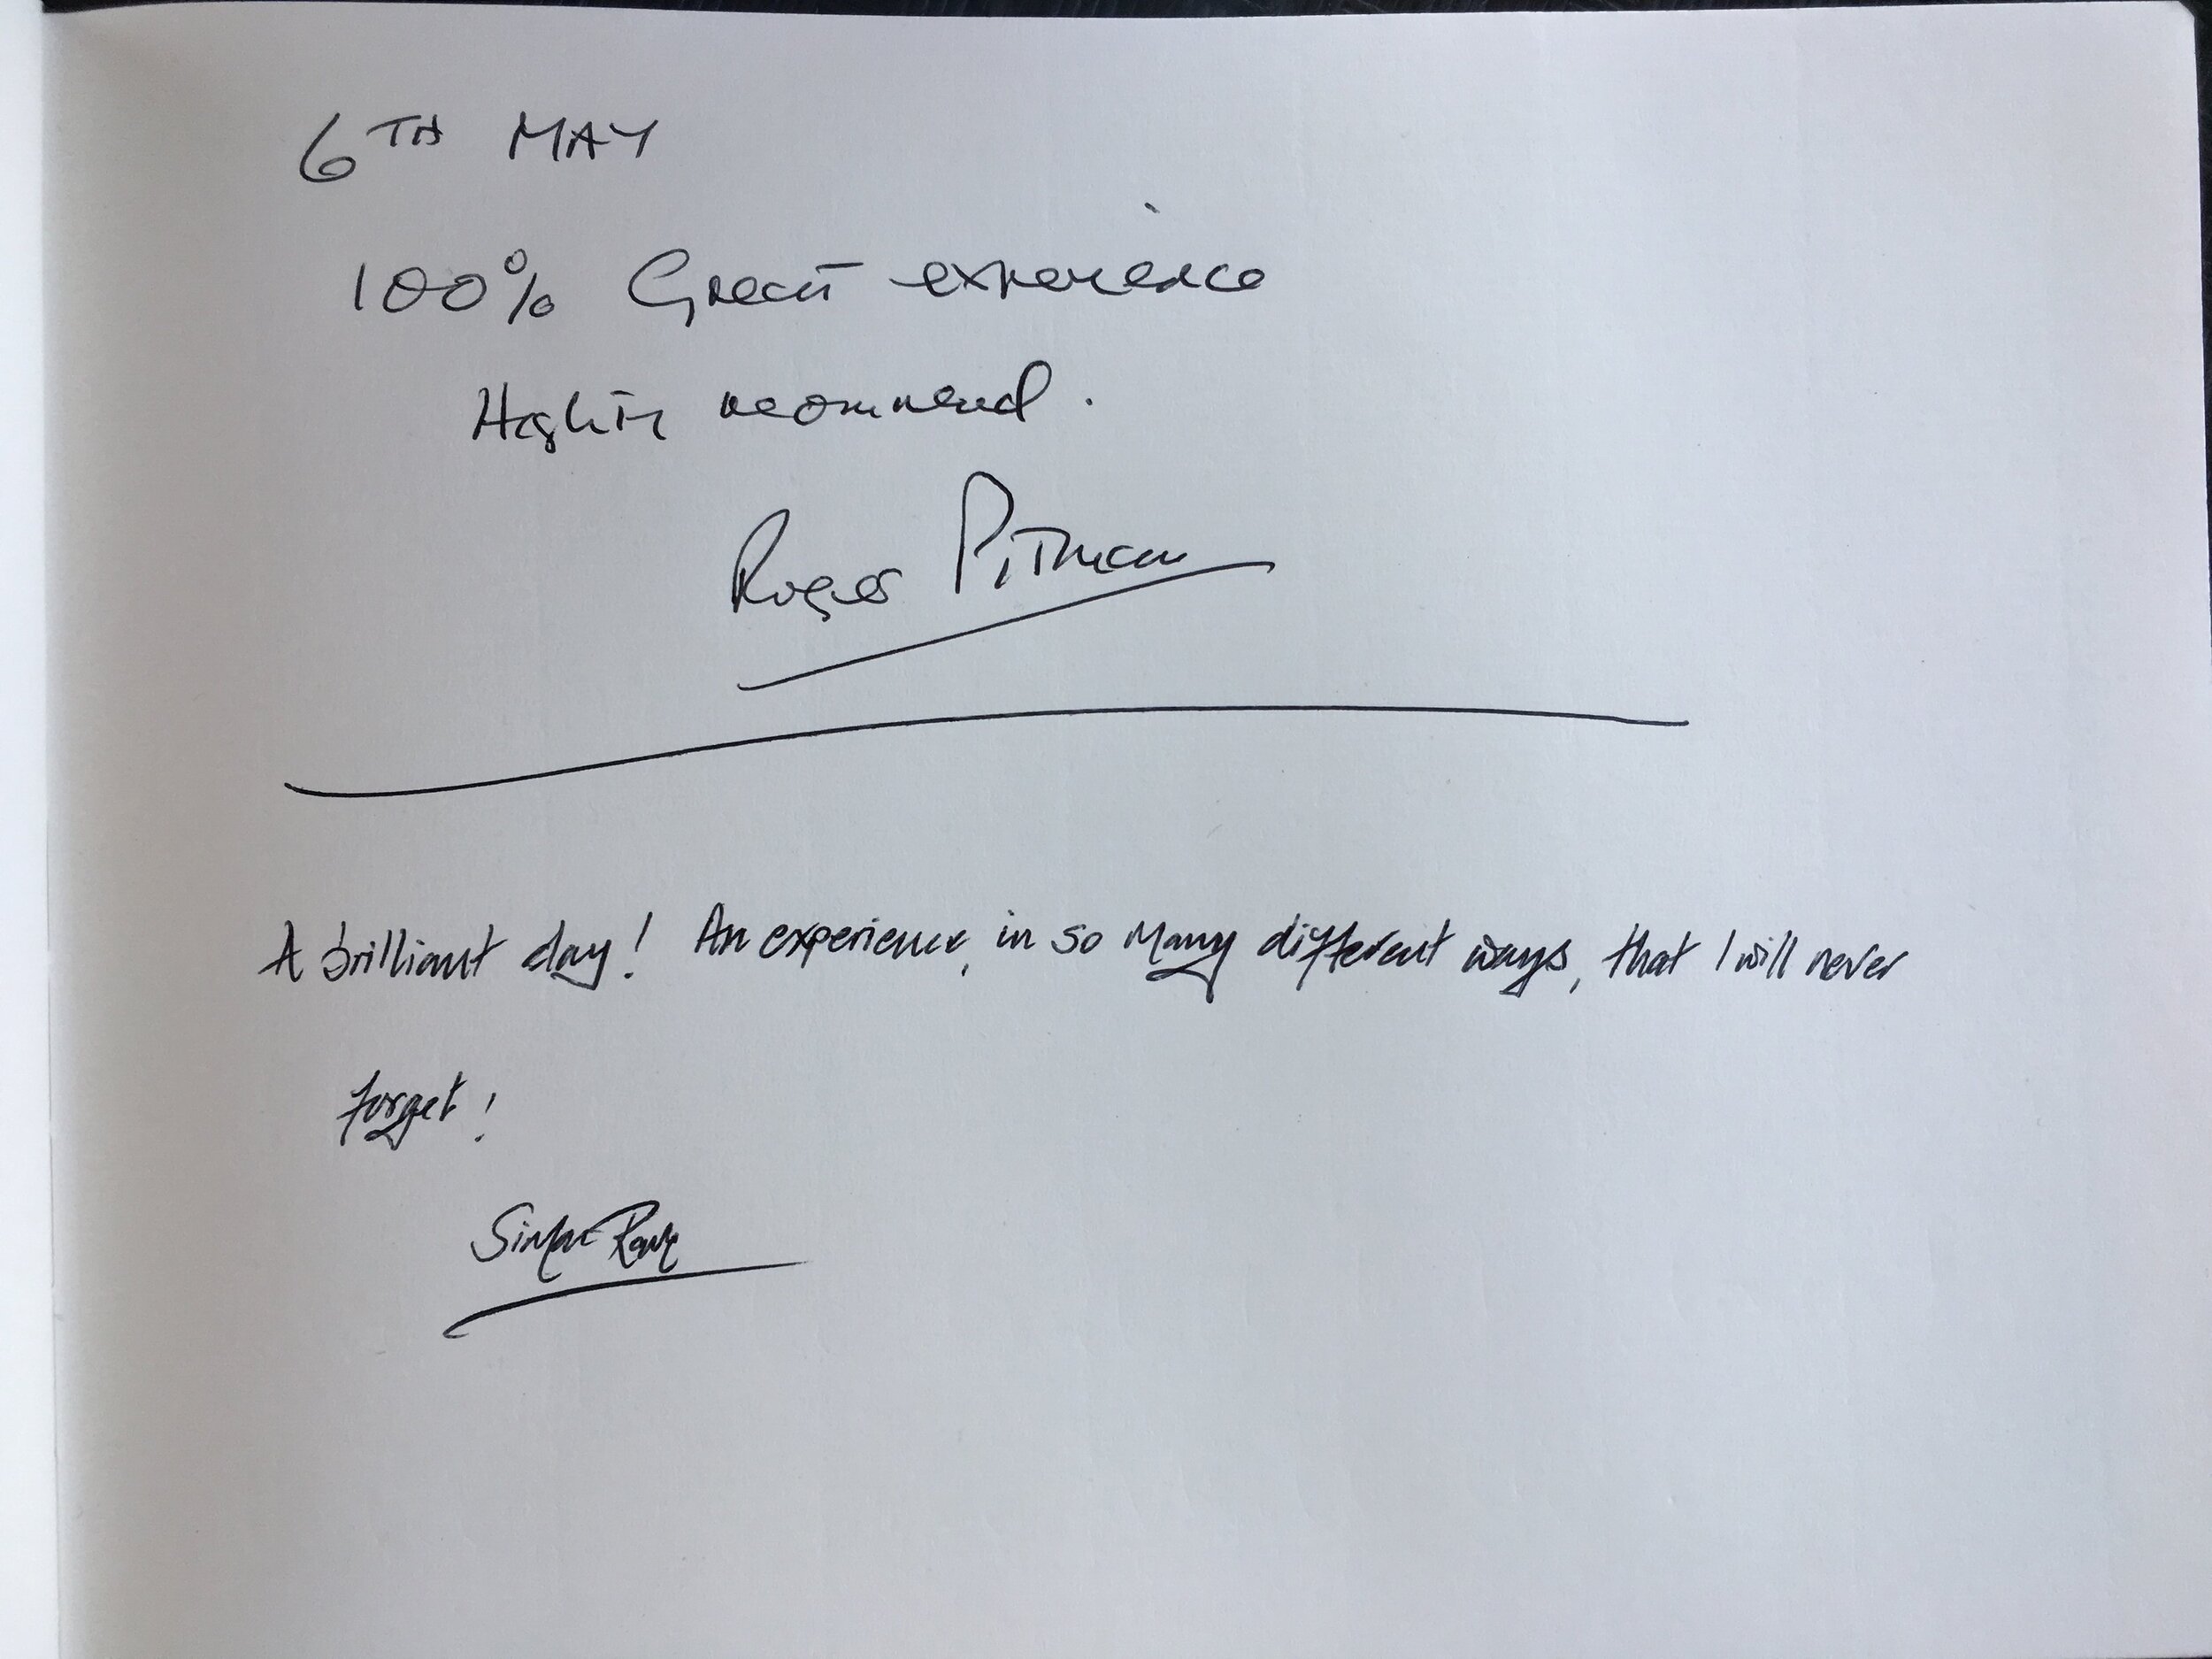 6TH MAY
100% Great experience
Highly recommend.
Roger Pitman
A brilliant day! An experience, in so many different ways, that I will never
forget!
Simon